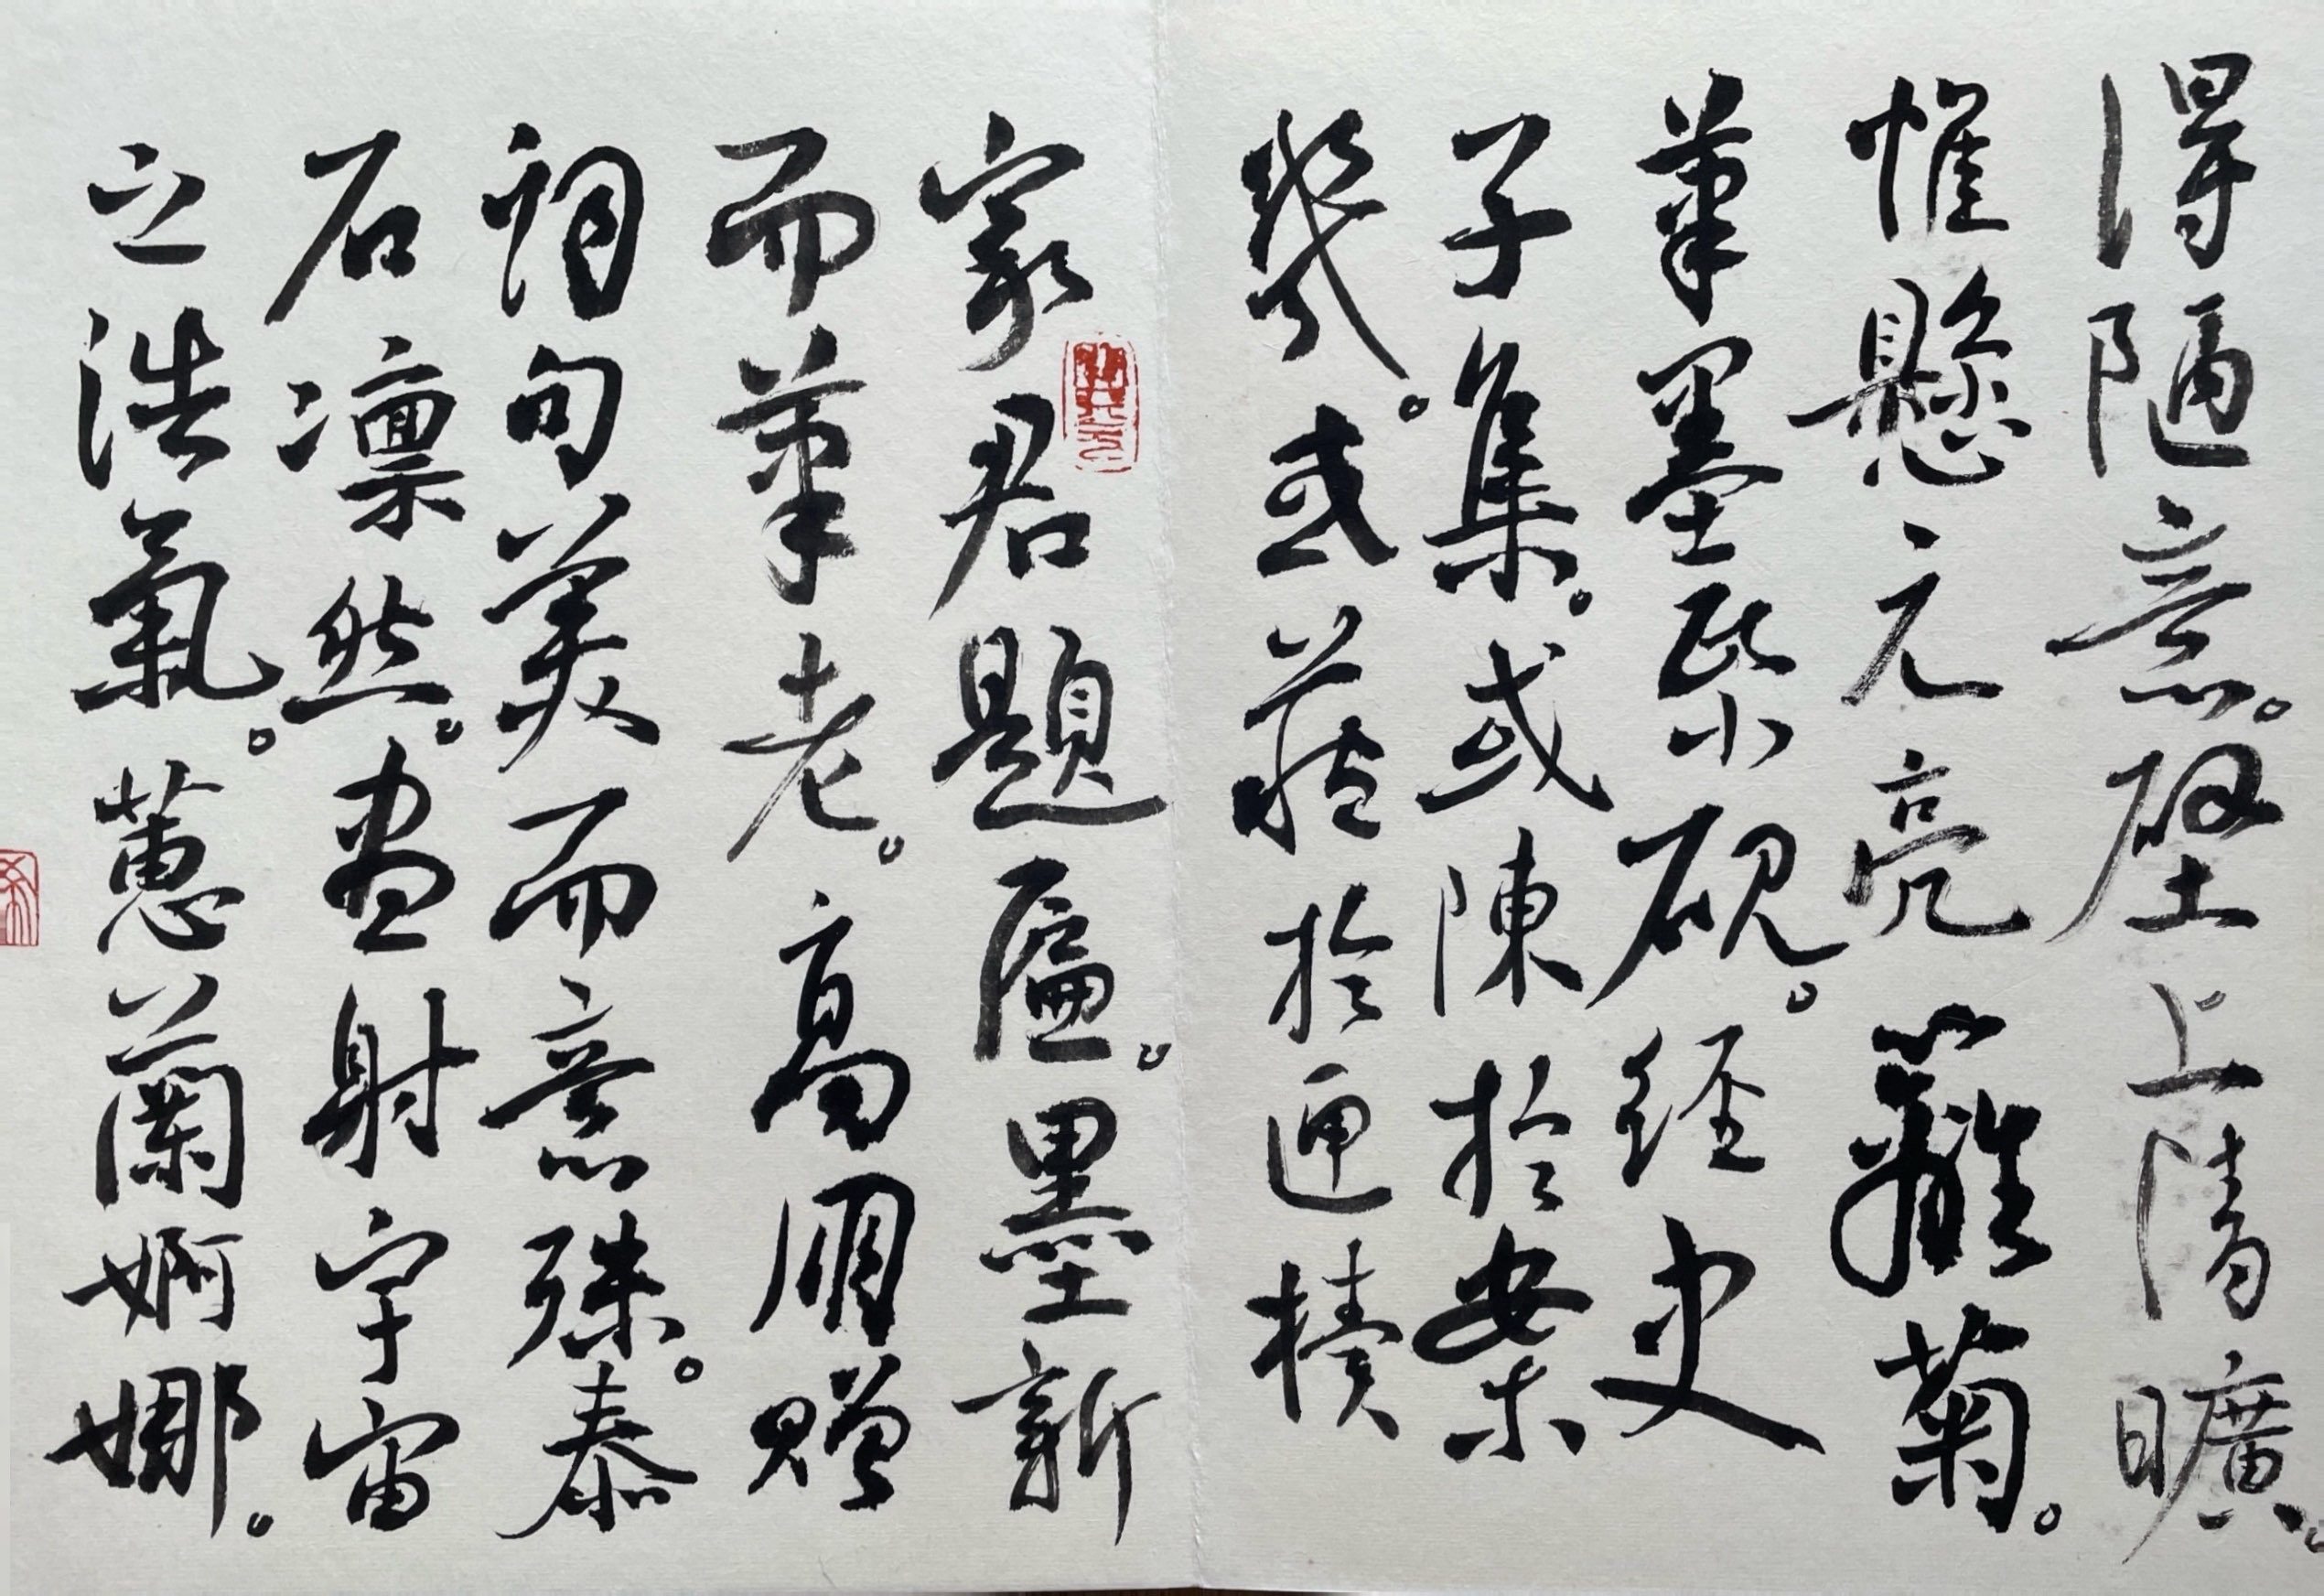 得陋意。壁上清曠。
惟懸元亮籬菊。
筆墨紫硯。经史
子集。或陳於案
幾。或藏於匣櫝
家君題匾。墨新
而筆老。高朋贈
詞句美而意殊。泰
石凛然。盡射宇宙
之浩氣。蕙蘭婀娜。